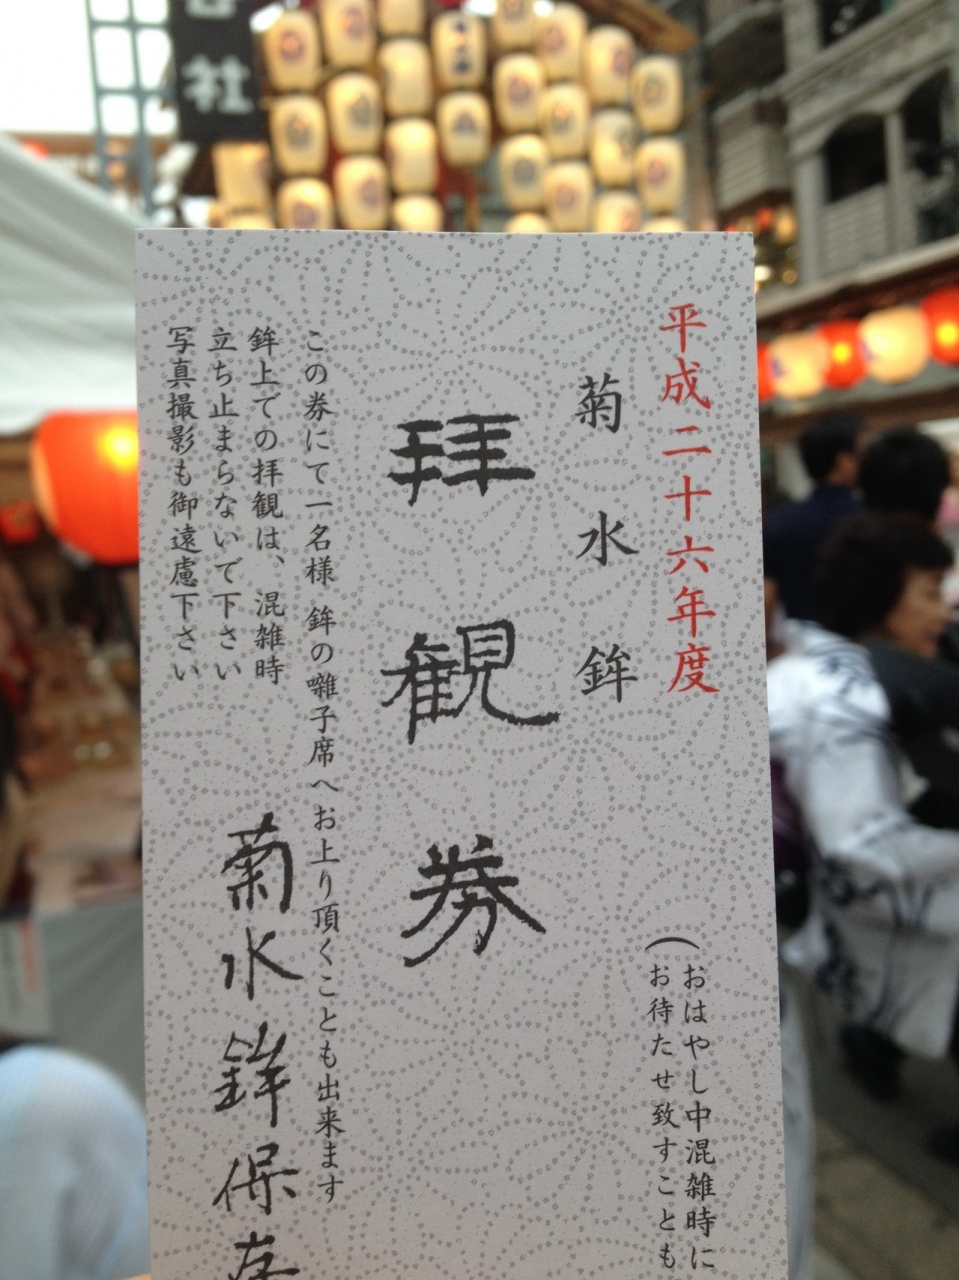 社
平成二十六年度
菊水鉾
拝観券
(おはやし中混雑時に
お待たせ致すことも
この券にて一名様 鉾の囃子席へお上り頂くことも出来ます
鉾上での拝観は、混雑時
立ち止まらないで下さい
写真撮影も御遠慮下さい
菊水鉾保存